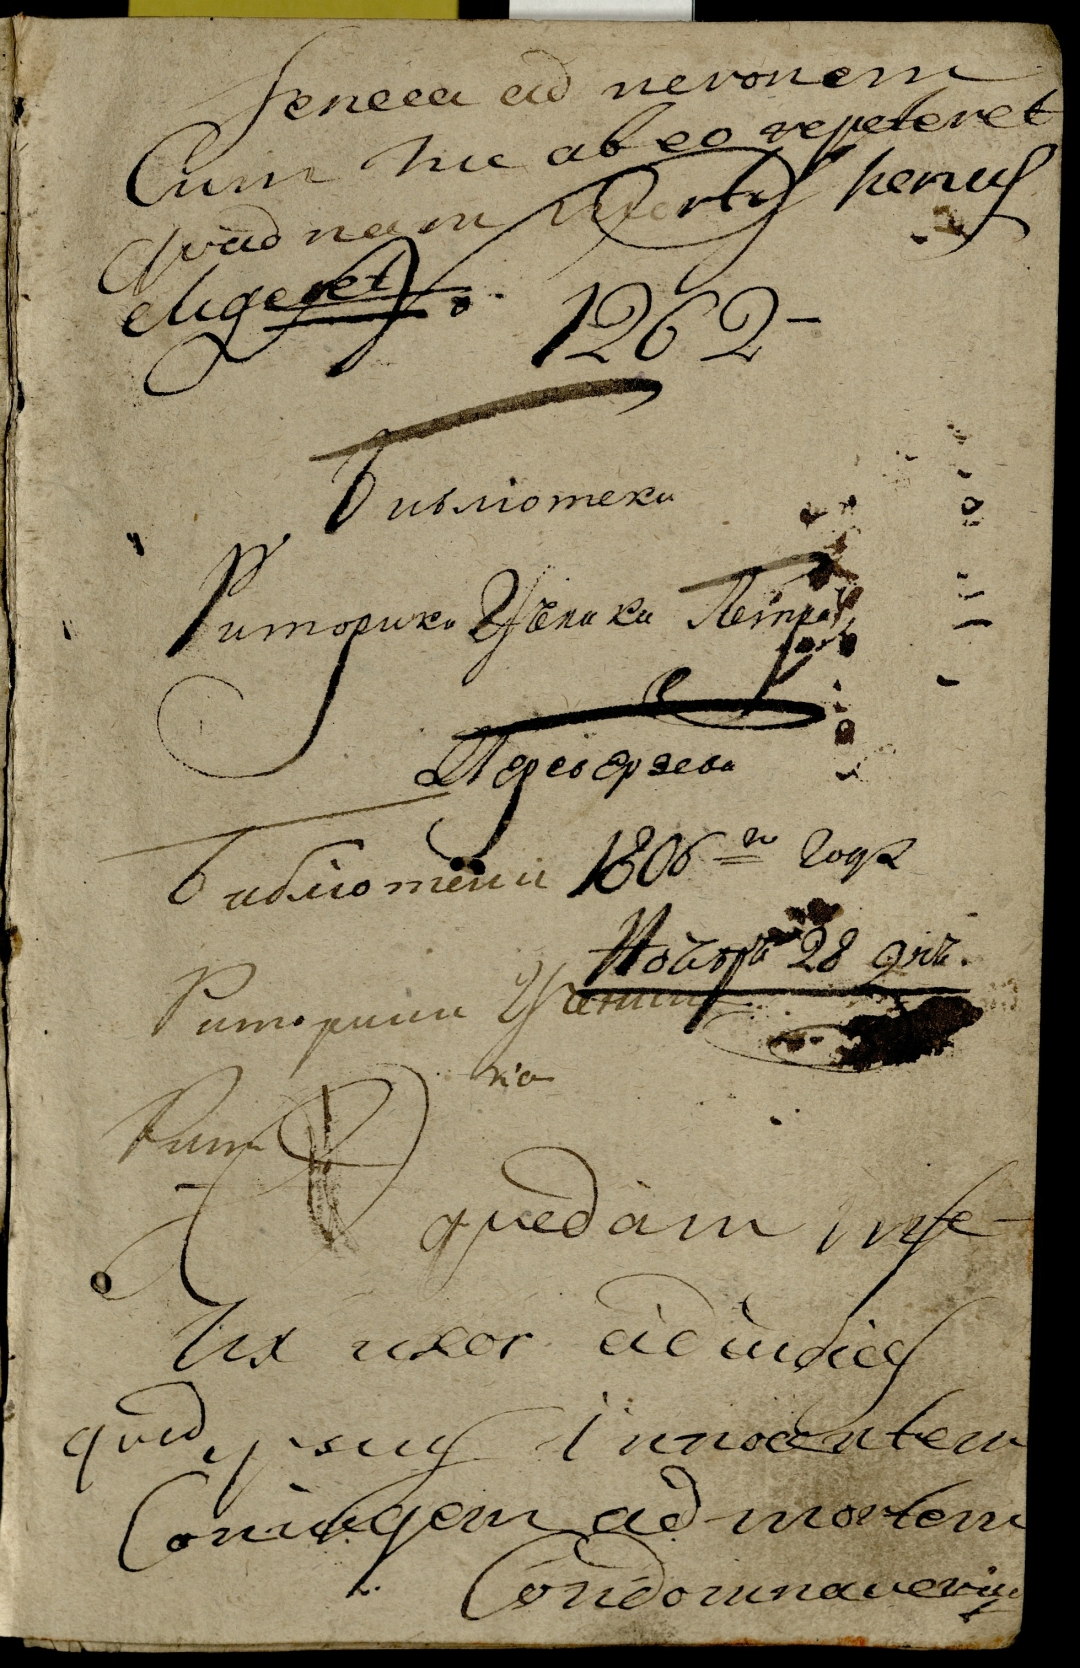 Seneca ad neronem
Cum hic ab eo repeteret
quod nam mortis penus
eligeret
1262
Библіотеки
Риторики Ученика Петра
Библіотеки 1806 го года
Ноября 28 дня.
Риторики Учени
ка
Рит
quedam infe-
lix uxor ad iudices
quod ipsius innocentem
Coniugem ad mortem
Condomnaverint